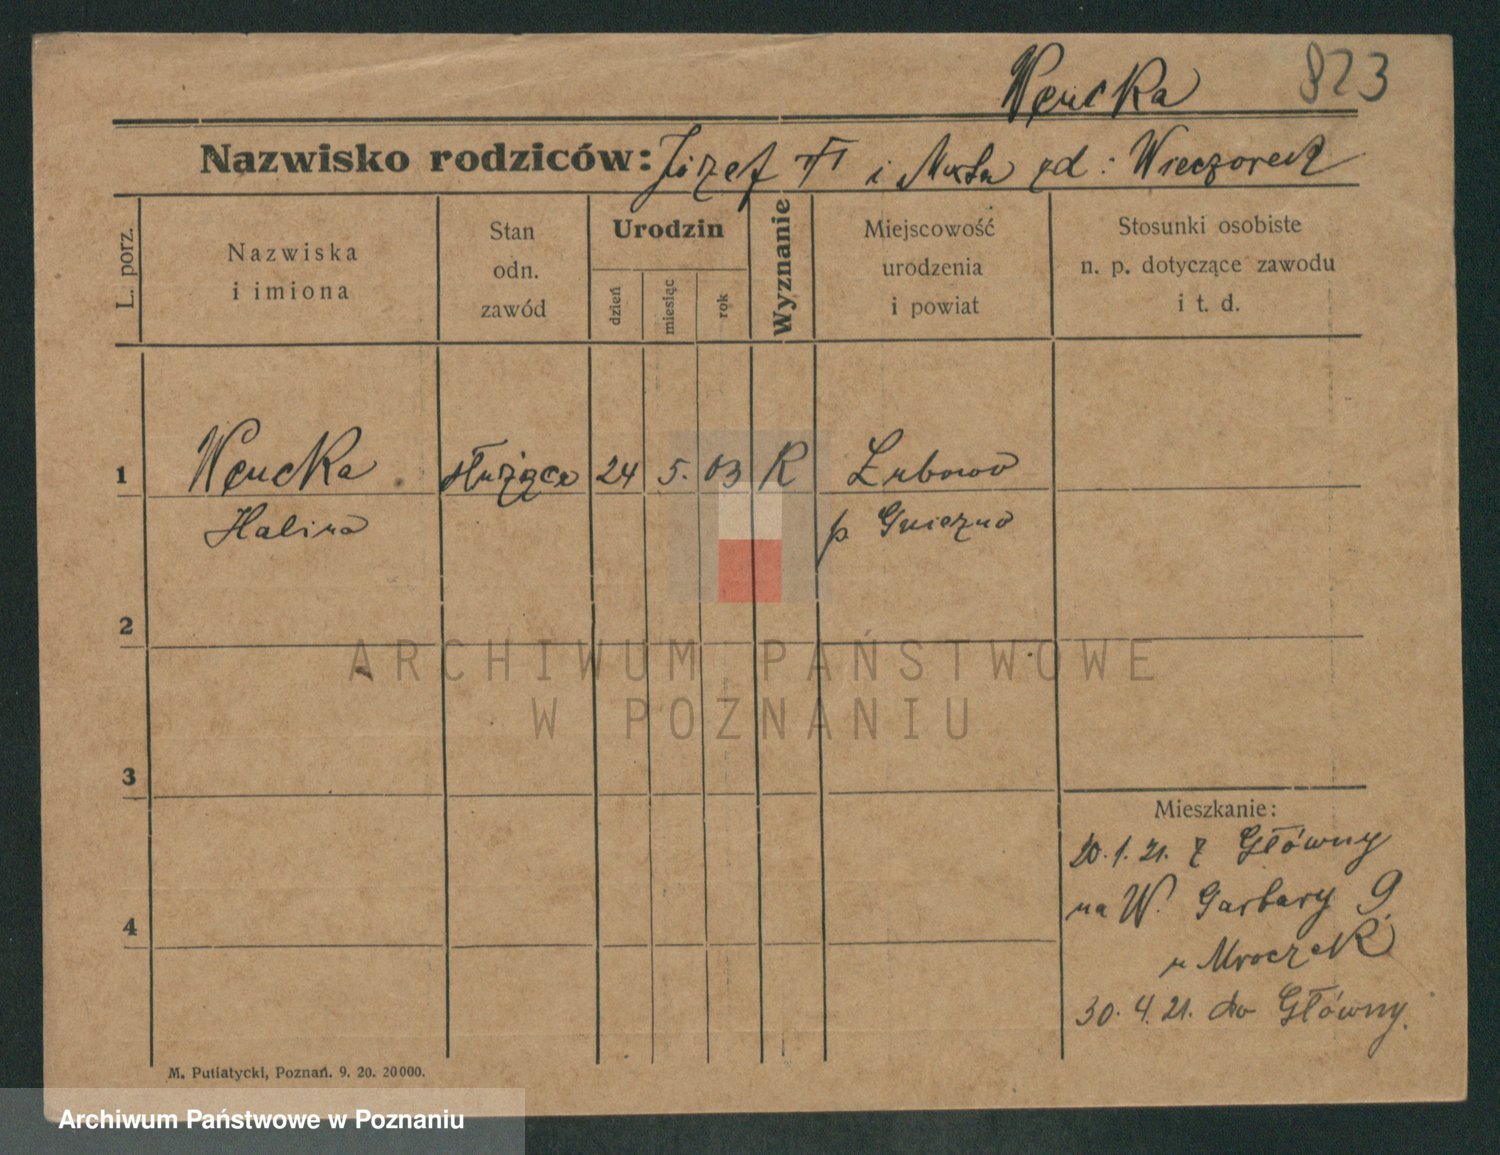 Węcka 823
Nazwisko rodziców: Józef i zd: Wieczorek
L. porz.
Nazwiska
i imiona
Stan
odn.
zawód
Urodzin
dzień
miesiąc
rok
Wyznanie
Miejscowość
urodzenia
i powiat
Stosunki osobiste
n. p. dotyczące zawodu
i t. d.
1 Węcka służąca 24 5. 03 R Łubowo
Halina p Gniezno
2
ARCHIWUM PAŃSTWOWE
W POZNANIU
3
Mieszkanie:
20.1.21. z Główny
na W. Garbary 9
u Mroczek
4
30.4.21. do Główny.
M. Putiatycki, Poznań. 9. 20. 20000.
Archiwum Państwowe w Poznaniu